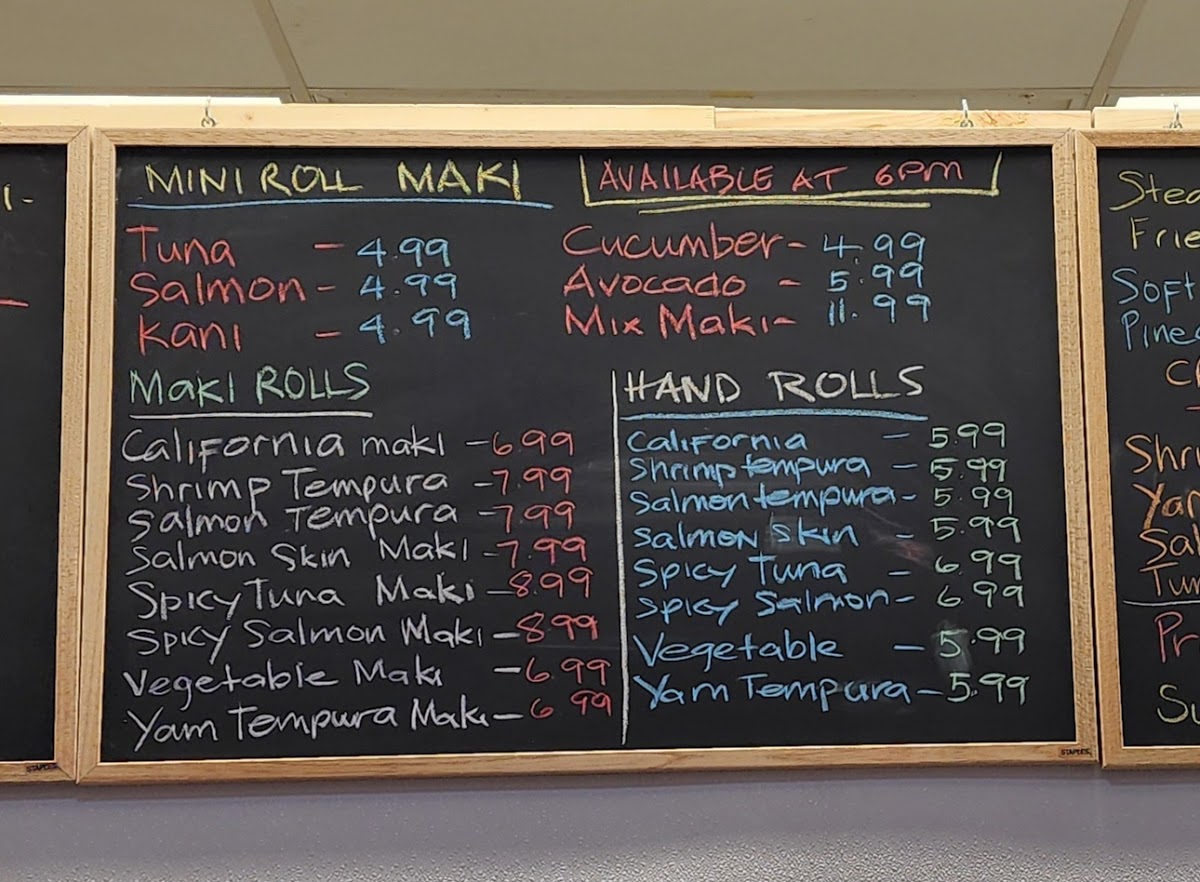 MINI ROLL MAKI
AVAILABLE AT 6PM
Tuna - 4.99
Salmon - 4.99
Kani - 4.99
Cucumber - 4.99
Avocado - 5.99
Mix Maki - 11.99
Maki ROLLS
California maki - 6.99
Shrimp Tempura - 7.99
Salmon Tempura - 7.99
Salmon Skin Maki - 7.99
Spicy Tuna Maki - 8.99
Spicy Salmon Maki - 8.99
Vegetable Maki - 6.99
Yam Tempura Maki - 6 99
HAND ROLLS
California - 5.99
Shrimp tempura - 5.99
Salmon tempura - 5.99
Salmon Skin - 5.99
Spicy Tuna - 6.99
Spicy Salmon - 6.99
Vegetable - 5.99
Yam Tempura - 5.99
STAPLES
STAPLES
Soft